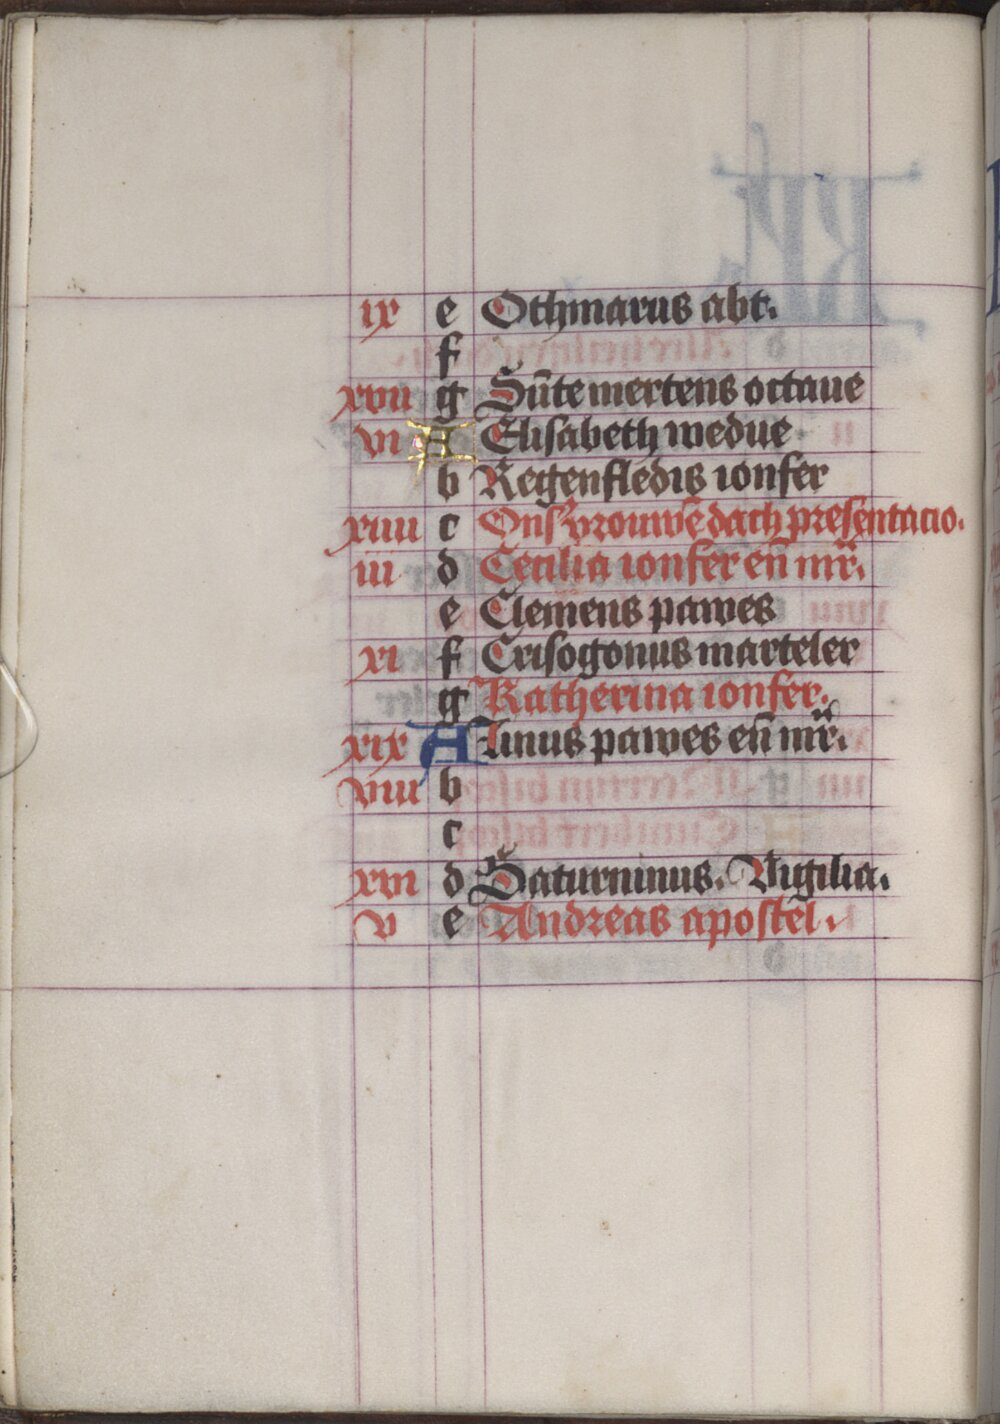 ix e Othmarus abt.
f
xvii g Sūte mertens octaue
vi A Elisabeth wedue
b Regenfledis ionfer
xiiii c Onsʼ vrouwē dach presentacio.
iii d Cecilia ionfer eñ mr̄.
e Clemens pawes
xi f Crisogonus marteler
g Katherina ionfer.
xix A Linus pawes eñ mr̄.
viii b
c
xvi d Saturninus. Vigilia.
v e Andreas apostel.